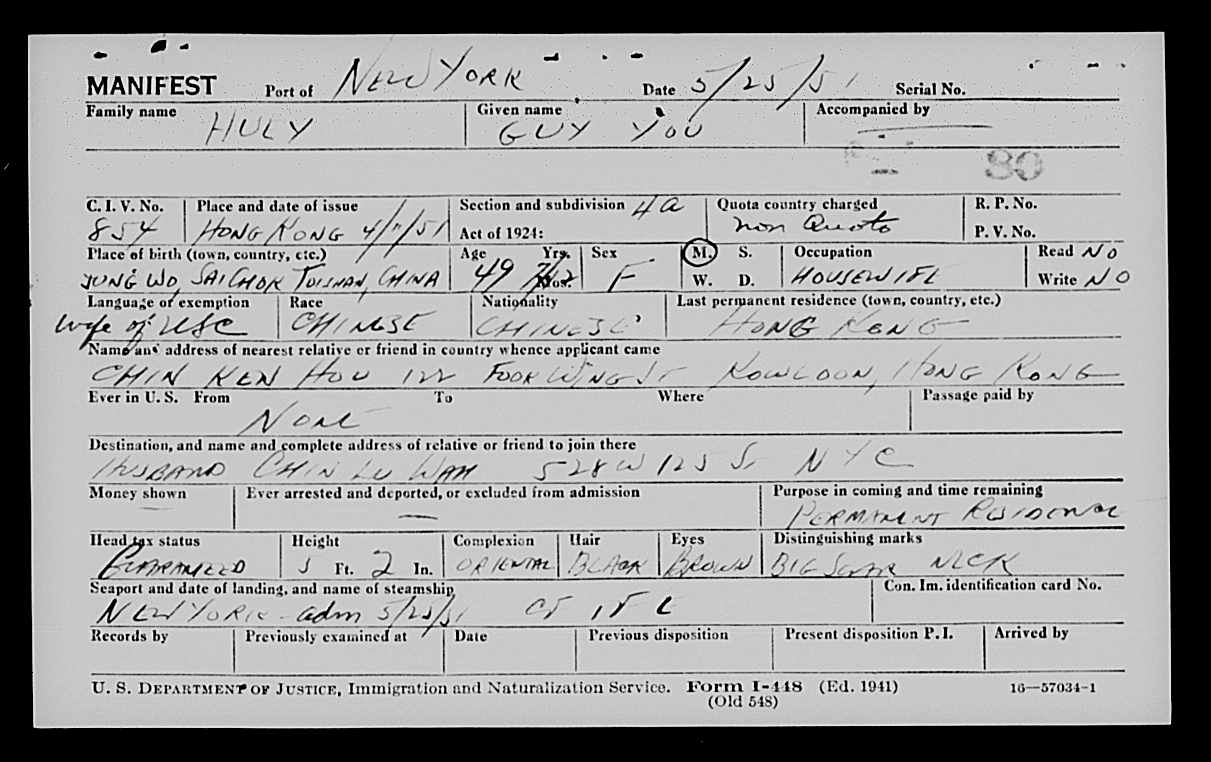 MANIFEST Port of NEW YORK Date 5/25/51 Serial No.
Family name HULY Given name GUY YOU Accompanied by
80
C. I. V. No. 854 Place and date of issue HONG KONG 4/11/51 Section and subdivision 4a Act of 1924: Quota country charged non Quota R. P. No. P. V. No.
Place of birth (town, country, etc.) JUNG WO, SAICHOK TOISHAN, CHINA Age 49 Yrs. Mos. Sex F M. S. W. D. Occupation HOUSEWIFE Read NO Write NO
Language or exemption wife of USC Race CHINESE Nationality CHINESE Last permanent residence (town, country, etc.) HONG KONG
Name and address of nearest relative or friend in country whence applicant came
CHIN KEN HOU 122 FOOK WING ST KOWLOON, HONG KONG
Ever in U. S. From To Where Passage paid by
NONE
Destination, and name and complete address of relative or friend to join there
HUSBAND CHIN LU WAH 528 W 125 St NYC
Money shown — Ever arrested and deported, or excluded from admission — Purpose in coming and time remaining PERMANENT RESIDENCE
Head tax status GUARANTEED Height 5 Ft. 2 In. Complexion ORIENTAL Hair BLACK Eyes BROWN Distinguishing marks BIG SCAR NECK
Seaport and date of landing, and name of steamship Con. Im. identification card No.
NEW YORK adm 5/25/51
Records by Previously examined at Date Previous disposition Present disposition P. I. Arrived by
U. S. DEPARTMENT OF JUSTICE, Immigration and Naturalization Service. Form I-448 (Ed. 1941) 16—57034-1
(Old 548)